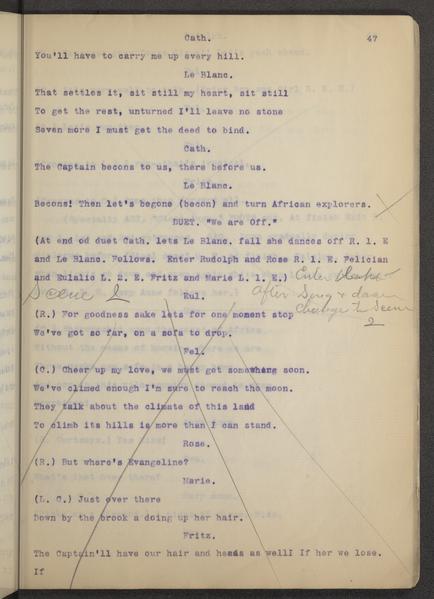 Cath. 47
You'll have to carry me up every hill.
Le Blanc.
That settles it, sit still my heart, sit still
To get the rest, unturned I'll leave no stone
Seven more I must get the deed to bind.
Cath.
The Captain becons to us, there before us.
Le Blanc.
Becons! Then let's begone (becon) and turn African explorers.
DUET. "We are Off."
(At end od duet Cath. lets Le Blanc. fall she dances off R. 1. E
and Le Blanc. Follows. Enter Rudolph and Rose R. 1. E. Felician
and Eulalie L. 2. E. Fritz and Marie L. 1. E.) Enter
Scene 2 After Song & dance
Eul. Change to Scene
(R.) For goodness sake lets for one moment stop 2
We've got so far, on a sofa to drop.
Fel.
(C.) Cheer up my love, we must get somewhere soon.
We've climed enough I'm sure to reach the moon.
They talk about the climate of this land
To climb its hills is more than I can stand.
Rose.
(R.) But where's Evangeline?
Marie.
(L. C.) Just over there
Down by the brook a doing up her hair.
Fritz.
The Captain'll have our hair and heads as well! If her we lose.
If